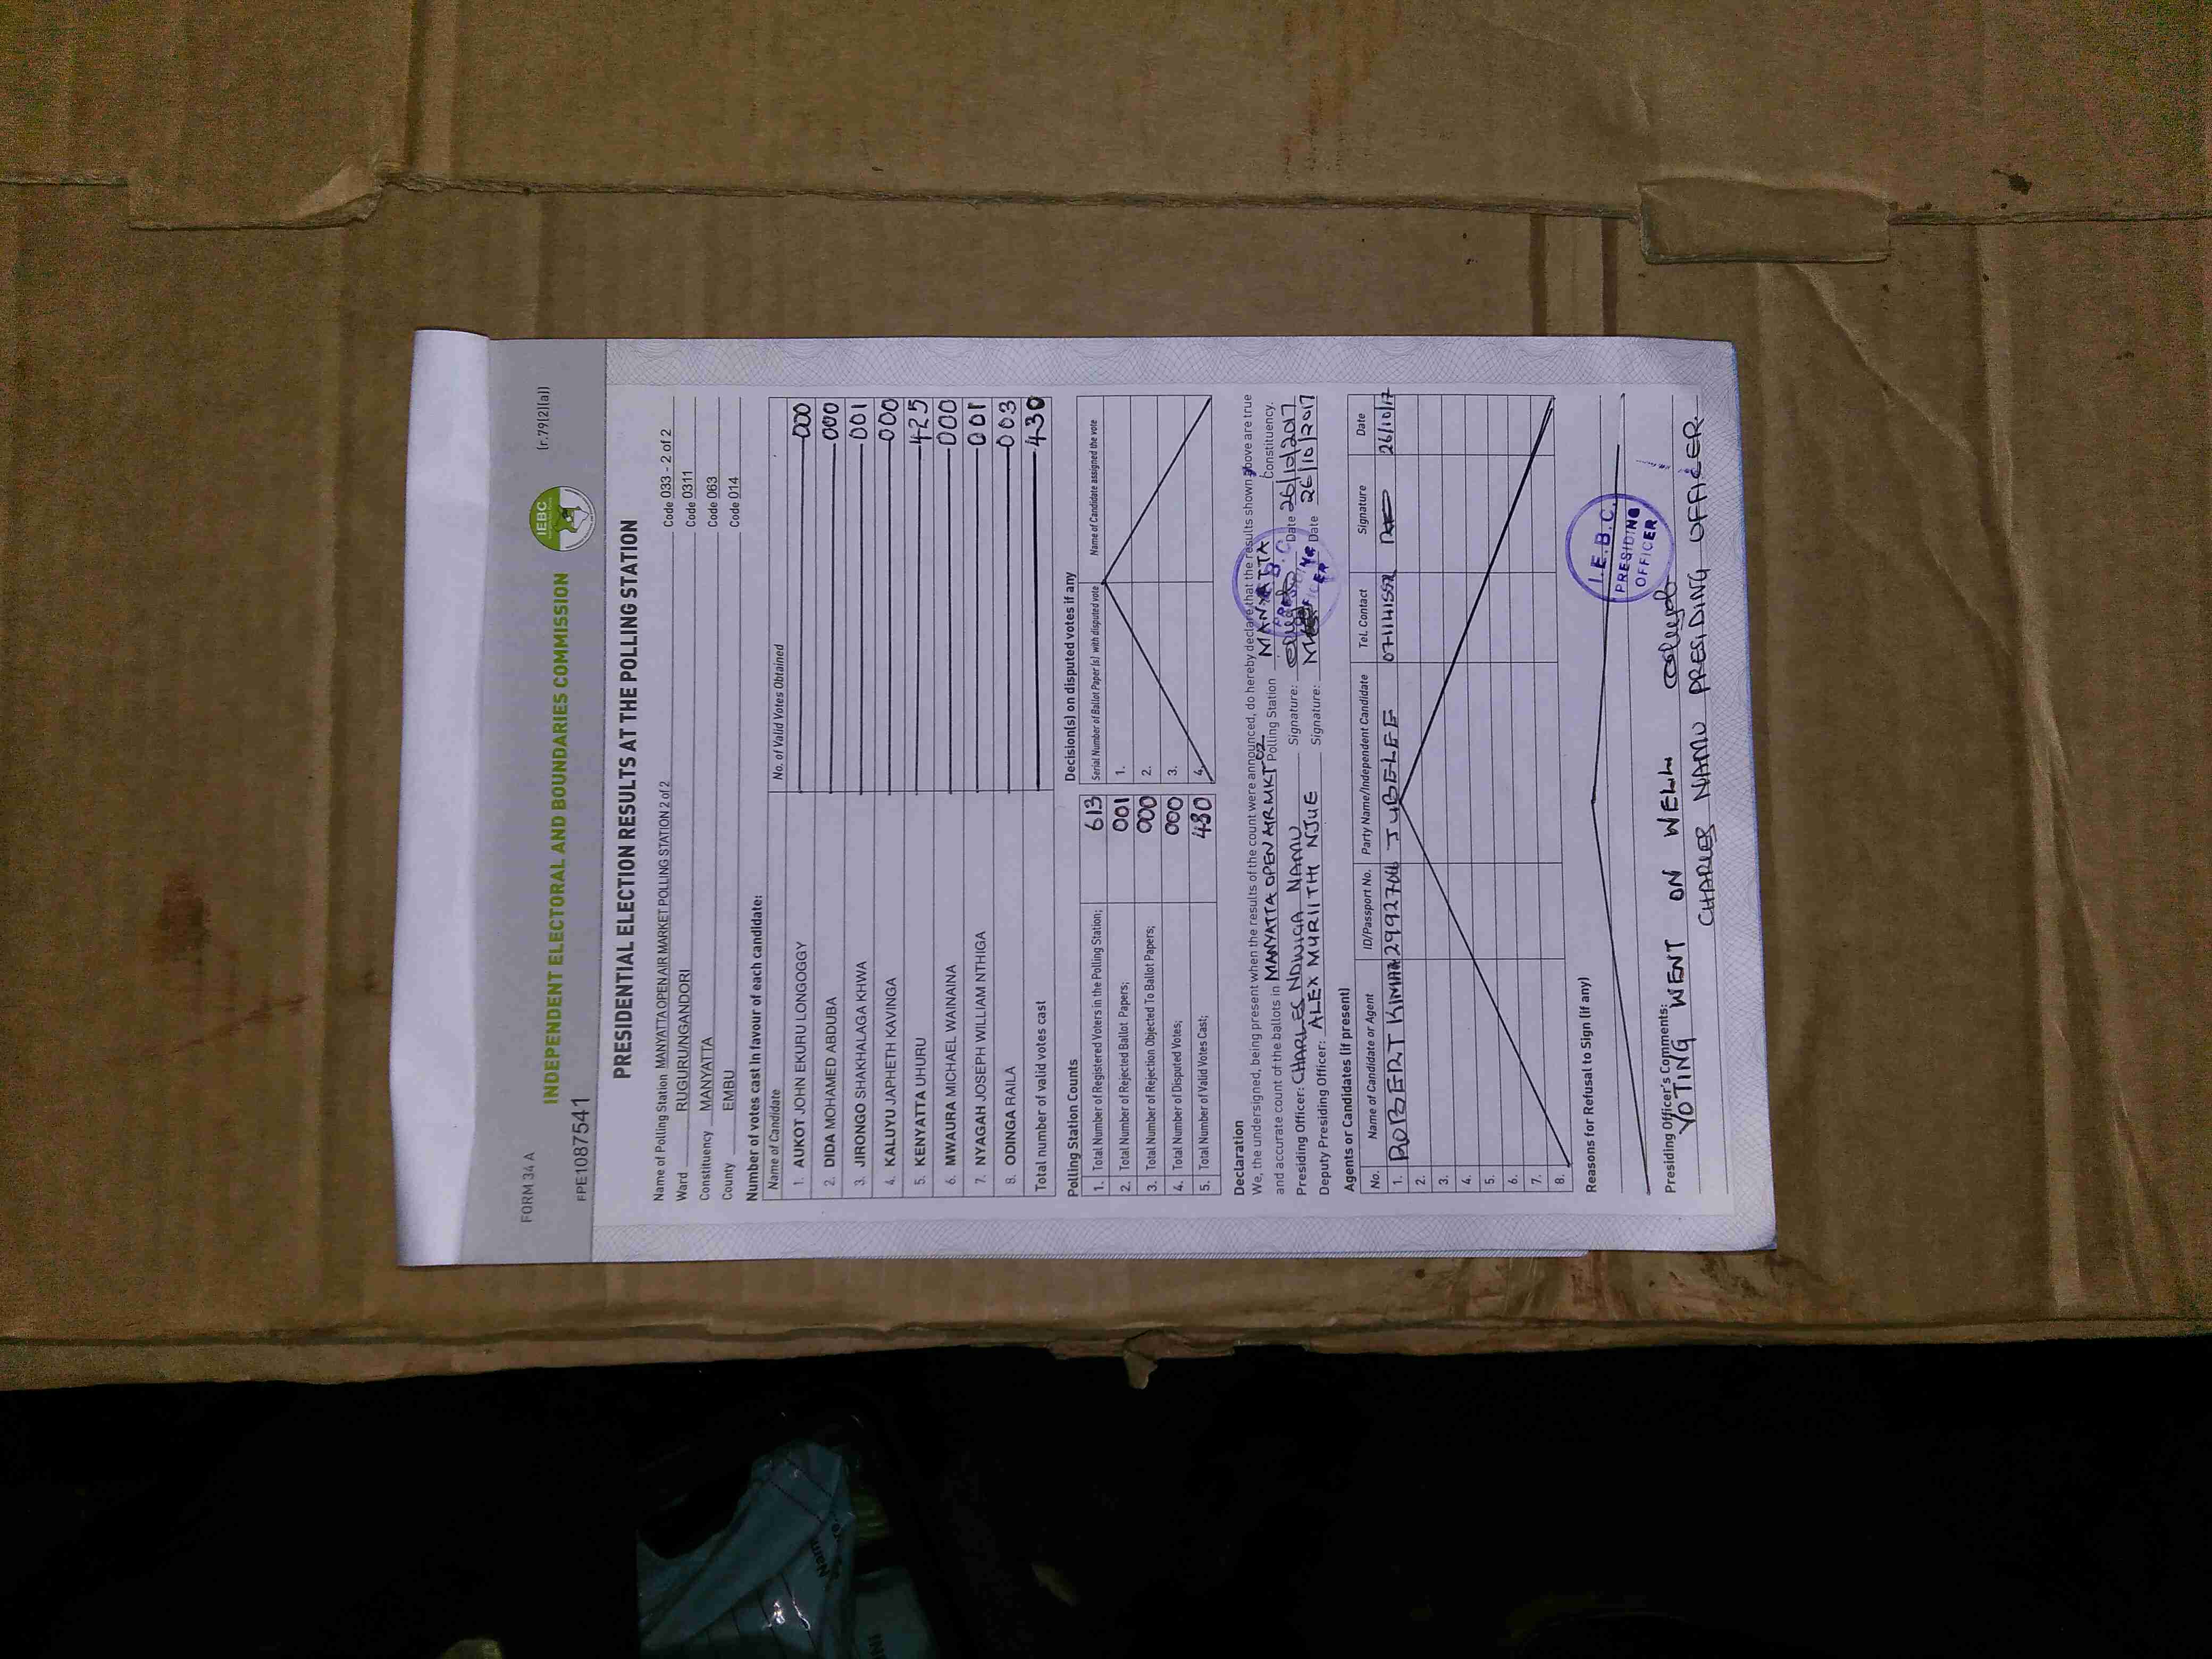 FORM 34 A
(r.79(2)(a))
INDEPENDENT ELECTORAL AND BOUNDARIES COMMISSION
IEBC
FPE1087541
PRESIDENTIAL ELECTION RESULTS AT THE POLLING STATION
Name of Polling Station MANYATTA OPEN AIR MARKET POLLING STATION 2 of 2 Code 033 - 2 of 2
Ward RUGURU/NGANDORI Code 0311
Constituency MANYATTA Code 063
County EMBU Code 014
Number of votes cast in favour of each candidate:
Name of Candidate No. of Valid Votes Obtained
1. AUKOT JOHN EKURU LONGOGGY 000
2. DIDA MOHAMED ABDUBA 000
3. JIRONGO SHAKHALAGA KHWA 001
4. KALUYU JAPHETH KAVINGA 000
5. KENYATTA UHURU 425
6. MWAURA MICHAEL WAINAINA 000
7. NYAGAH JOSEPH WILLIAM NTHIGA 001
8. ODINGA RAILA 003
Total number of valid votes cast 430
Polling Station Counts
1. Total Number of Registered Voters in the Polling Station; 613
2. Total Number of Rejected Ballot Papers; 001
3. Total Number of Rejection Objected To Ballot Papers; 000
4. Total Number of Disputed Votes; 000
5. Total Number of Valid Votes Cast; 430
Decision(s) on disputed votes if any
Serial Number of Ballot Paper (s) with disputed vote Name of Candidate assigned the vote
1.
2.
3.
4.
Declaration
We, the undersigned, being present when the results of the count were announced, do hereby declare that the results shown above are true
and accurate count of the ballots in MANYATTA OPEN AIR MKT 02 Polling Station MANYATTA Constituency.
Presiding Officer: CHARLES NDWIGA NAMU Signature: Date 26/10/2017
Deputy Presiding Officer: ALEX MURIITHI NJUE Signature: Date 26/10/2017
Agents or Candidates (if present)
No. Name of Candidate or Agent ID/Passport No. Party Name/Independent Candidate Tel. Contact Signature Date
1. ROBERT 2992706 JUBELEE 26/10/17
2.
3.
4.
5.
6.
7.
8.
Reasons for Refusal to Sign (if any)
I.E.B.C.
PRESIDING
OFFICER
Presiding Officer's Comments:
VOTING WENT ON WELL
CHARLES NAMU PRESIDING OFFICER